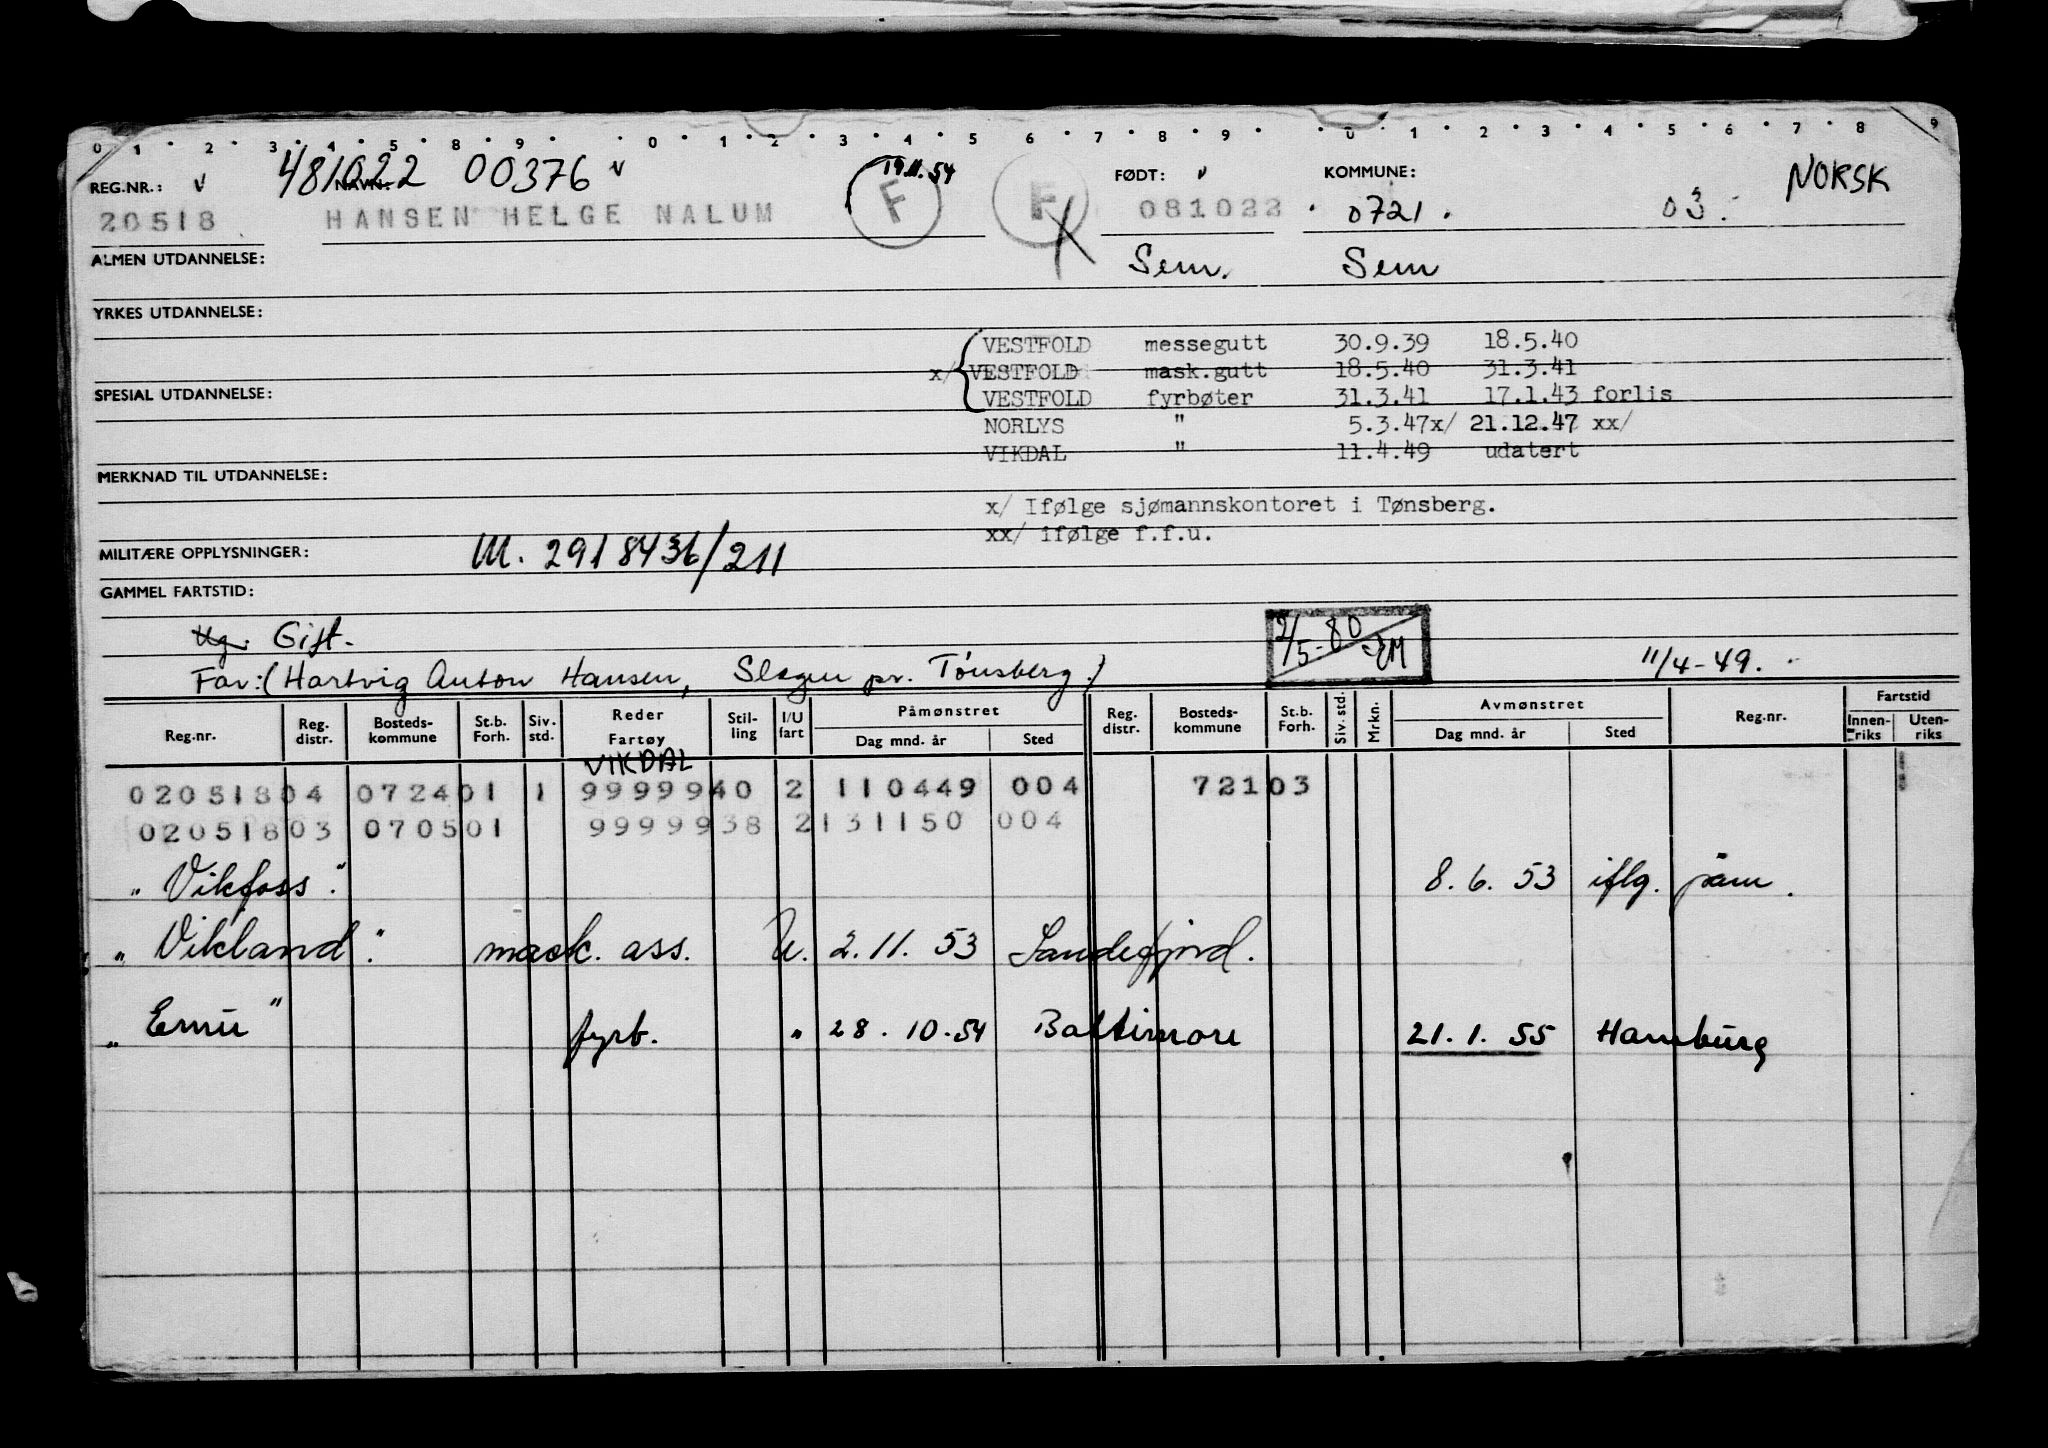 0 1 2 3 4 5 8 9 0 1 2 3 4 5 6 7 8 9 0 1 2 3 4 5 6 7 8 9
REG.NR.: v 481022 NAVN: 00376 v 19.11.54 FØDT: v KOMMUNE: NORSK
20518 HANSEN HELGE NALUM F F 081022 0721. 03.
ALMEN UTDANNELSE: Sem. Sem
YRKES UTDANNELSE:
VESTFOLD messegutt 30.9.39 18.5.40
x/ VESTFOLD mask.gutt 18.5.40 31.3.41
SPESIAL UTDANNELSE: VESTFOLD fyrbøter 31.3.41 17.1.43 forlis
NORLYS " 5.3.47x/ 21.12.47 xx/
VIKDAL " 11.4.49 udatert
MERKNAD TIL UTDANNELSE:
x/ Ifølge sjømannskontoret i Tønsberg.
xx/ ifølge f.f.u.
MILITÆRE OPPLYSNINGER: M. 2918436/211
GAMMEL FARTSTID:
Ug. Gift. 2/5-80 EM
Far: (Hartvig Anton Hansen, Slagen pr. Tönsberg.) 11/4-49.
Reg.nr. Reg. distr. Bosteds- kommune St.b. Forh. Siv. std. Reder Fartøy Stil- ling I/U fart Påmønstret Dag mnd. år Sted Reg. distr. Bosteds- kommune St.b. Forh. Siv. std. Mrkn. Avmønstret Dag mnd. år Sted Reg.nr. Fartstid Innen- riks Uten- riks
VIKDAL
02051804 072401 1 9999940 2 110449 004 72103
02051803 070501 9999938 2 131150 004
"Vikfoss". 8.6.53 iflg. påm.
"Vikland". mask. ass. U. 2.11.53 Sandefjord.
"Ernü" fyrb. " 28.10.54 Baltimore 21.1.55 Hamburg